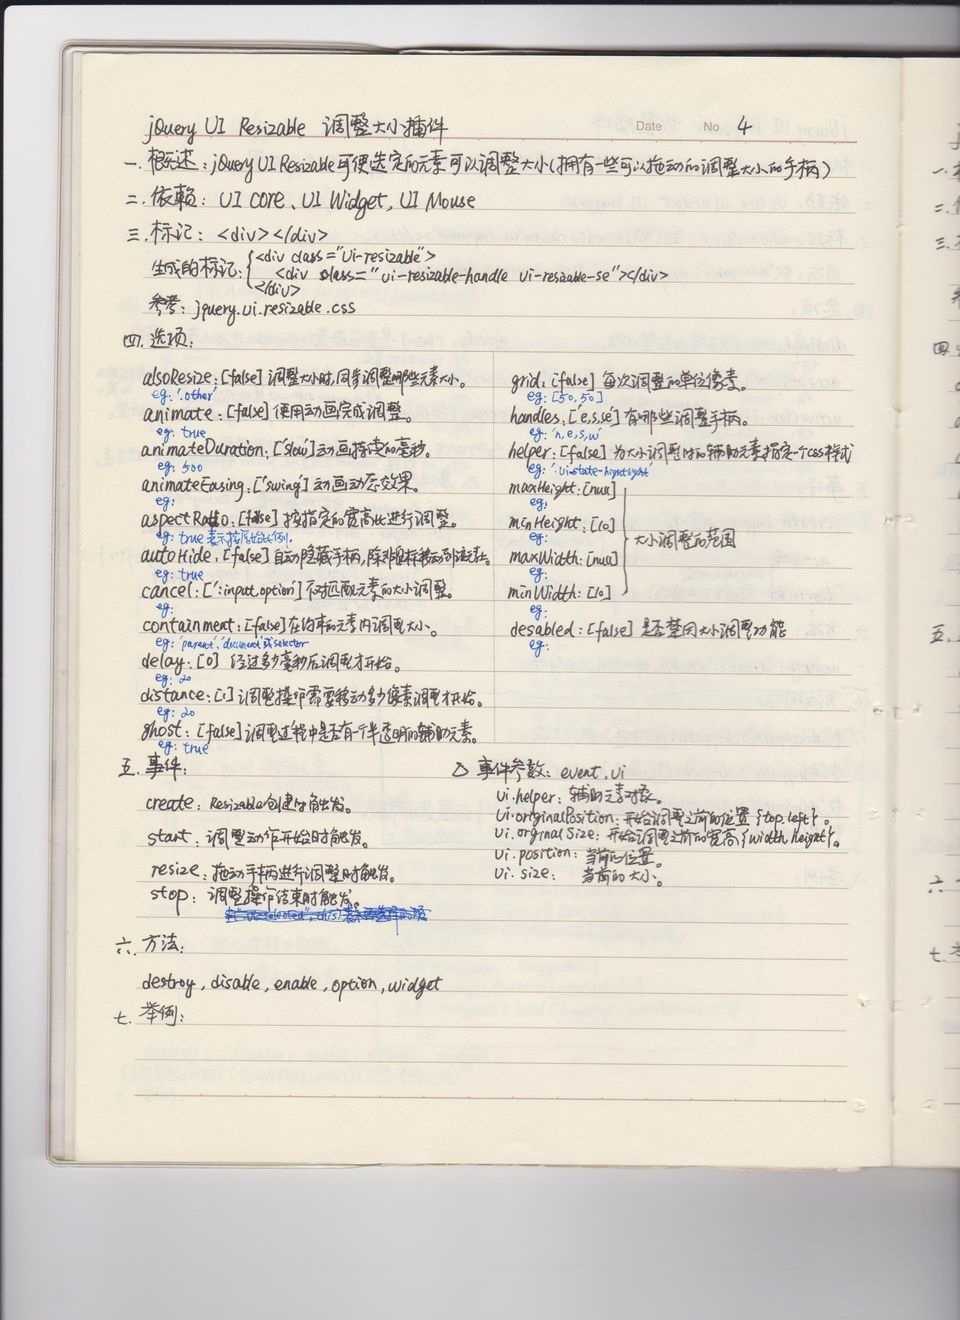 jQuery UI Resizable 调整大小插件
Date No. 4
一. 概述: jQuery UI Resizable可使选定的元素可以调整大小(拥有一些可以拖动的调整大小的手柄)
二. 依赖: UI core、UI Widget, UI Mouse
三. 标记: <div></div>
生成的标记: <div class="ui-resizable">
<div class="ui-resizable-handle ui-resizable-se"></div>
</div>
参考: jquery.ui.resizable.css
四. 选项:
alsoResize: [false] 调整大小时,同步调整哪些元素大小。
eg: '.other'
animate: [false] 使用动画完成调整。
eg: true
animateDuration: ['slow'] 动画持续的毫秒。
eg: 500
animateEasing: ['swing'] 动画动态效果。
eg:
aspectRatio: [false] 按指定的宽高比进行调整。
eg: true 表示按原始比例.
autoHide: [false] 自动隐藏手柄,除非鼠标移动到元素上。
eg: true
cancel: [':input,option'] 不对匹配元素的大小调整。
eg:
containment: [false] 在约束的元素内调整大小。
eg: 'parent','document'或selector
delay: [0] 经过多少毫秒后调整才开始。
eg: 20
distance: [1] 调整操作需要移动多少像素调整才开始。
eg: 20
ghost: [false] 调整过程中是否有一个半透明的辅助元素。
eg: true
grid: [false] 每次调整的单位像素。
eg: [50,50]
handles: ['e,s,se'] 有哪些调整手柄。
eg: 'n,e,s,w'
helper: [false] 为大小调整时的辅助元素指定一个css样式
eg: 'ui-state-highlight'
maxHeight: [null]
eg:
minHeight: [10]
eg:
大小调整的范围
maxWidth: [null]
eg:
minWidth: [10]
eg:
desabled: [false] 是否禁用大小调整功能
eg:
五. 事件:
create: Resizable创建时触发。
start: 调整动作开始时触发。
resize: 拖动手柄进行调整时触发。
stop: 调整操作结束时触发。
△ 事件参数: event, ui
ui.helper: 辅助元素对象。
ui.originalPosition: 开始调整之前的位置{top,left}。
ui.orginal Size: 开始调整之前的宽高{width, height}。
ui.position: 当前的位置。
ui.size: 当前的大小。
六. 方法:
destroy, disable, enable, option, widget
七. 举例: